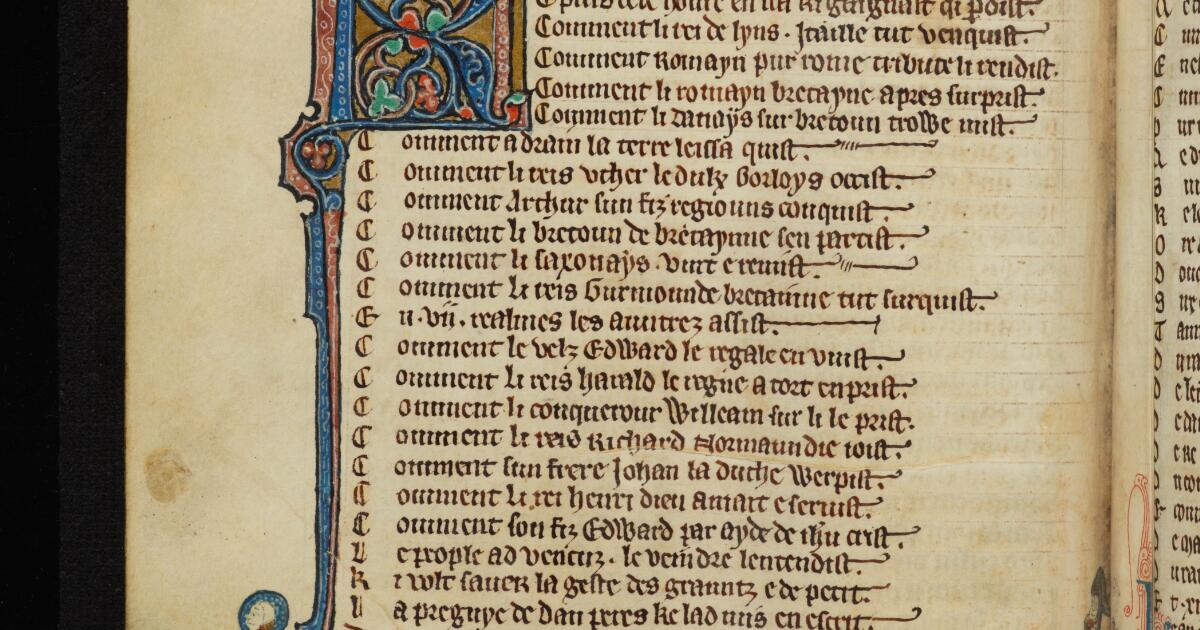 Comment li rei de lyns . Itaille tut venquist.
Comment Romayn pur rome tribute li rendist.
Comment li romayn bretayne apres surprist.
Comment li danays sur bretoun trowe mist.
Comment adrain la terre leissa quist.
Comment li reis Vther le duk Gorloys occist.
Comment Arthur sun fiz regiouns conquist.
Comment li bretoun de bretaynne sen partist.
Comment li saxonays . vint e remist.
Comment li reis Gurmounde bretaine tut surquist.
En .vii. realmes les auntrez assist.
Comment le velz Edward le regale en vnist.
Comment li reis harald le regne a tort en prist.
Comment li conquerour Willeam sur li le prist.
Comment li reis Richard Normaundie ioist.
Comment sun frere Johan la duche Werpist.
Comment li rei henri dieu amait e seruist.
Comment son fiz Edward par ayde de ihu crist.
Le pople ad vencuz . le veindre lentendist.
Ki volt sauer la geste des grauntz e de petit.
La preguye de dan peres ke lad mis en escrit.